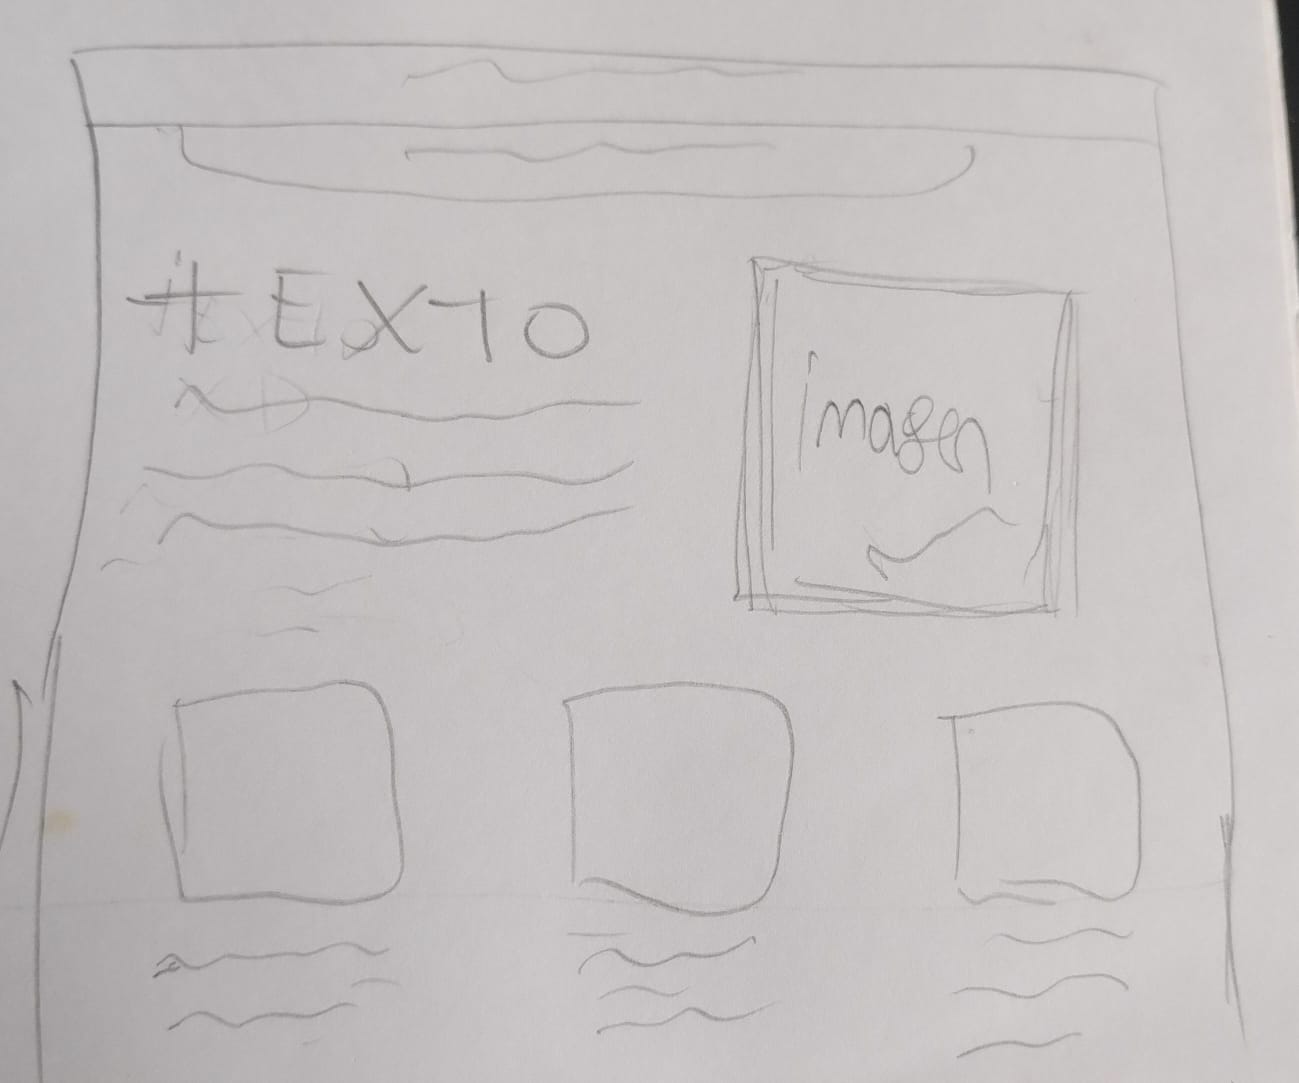 tEXTO
imagen